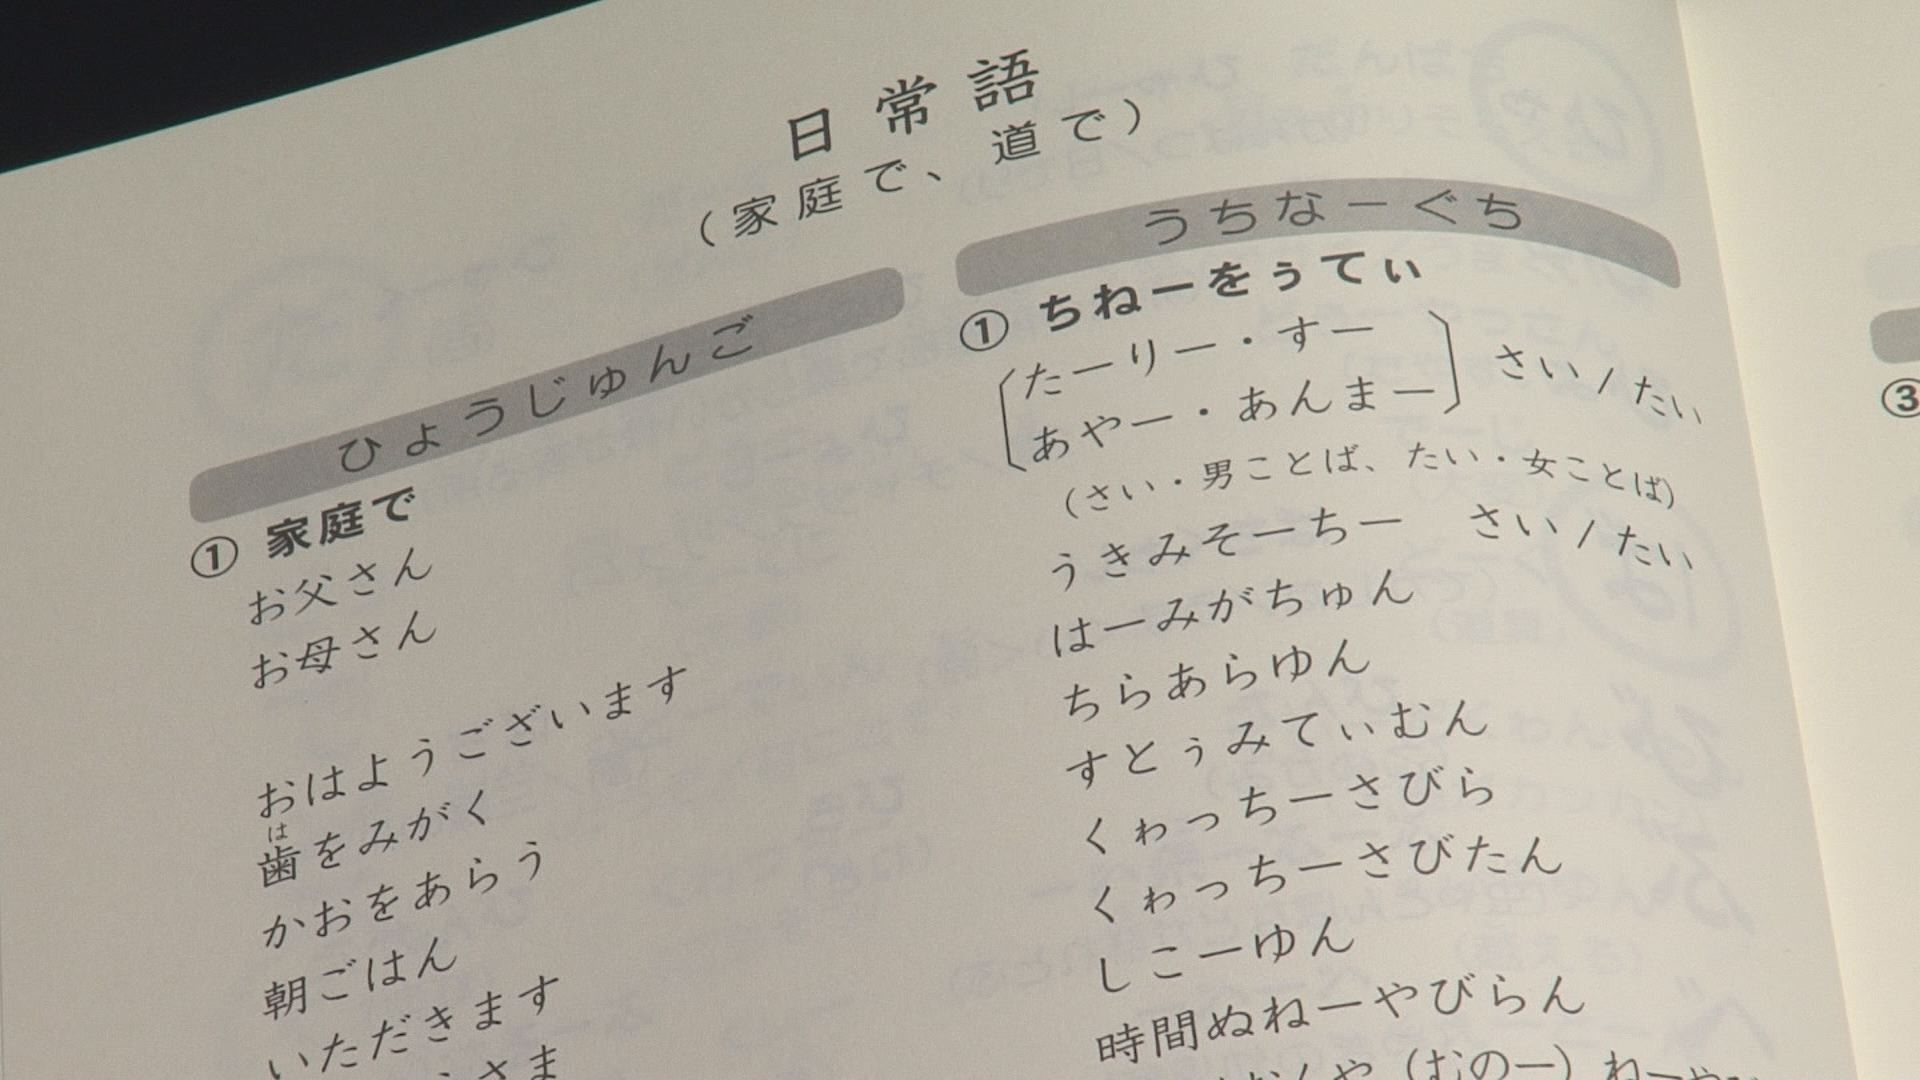 日常語
(家庭で、道で)
ひょうじゅんご
① 家庭で
お父さん
お母さん
おはようございます
歯をみがく
は
かおをあらう
朝ごはん
いただきます
さま
うちなーぐち
① ちねーをぅてぃ
たーりー・すー
あやー・あんまー
さい/たい
(さい・男ことば、たい・女ことば)
うきみそーちー さい/たい
はーみがちゅん
ちらあらゆん
すとぅみてぃむん
くゎっちーさびら
くゎっちーさびたん
しこーゆん
時間ぬねーやびらん
(むのー)ねーや
③